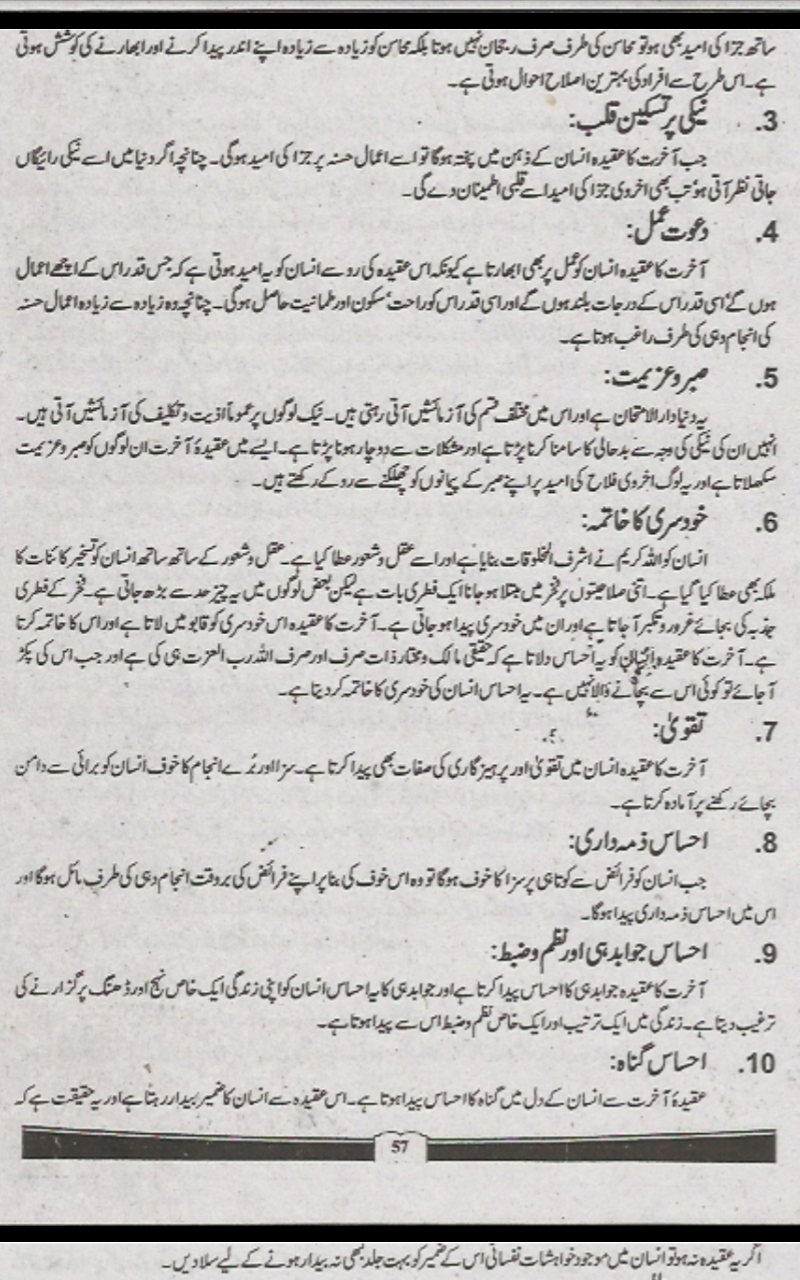 ساتھ جزا کی امید بھی ہو تو محاسن کی طرف صرف رجحان نہیں ہوتا بلکہ محاسن کو زیادہ سے زیادہ اپنے اندر پیدا کرنے اور ابھارنے کی کوشش ہوتی
ہے۔ اس طرح سے افراد کی بہترین اصلاح احوال ہوتی ہے۔
3. نیکی پر تسکین قلب:
جب آخرت کا عقیدہ انسان کے ذہن میں پختہ ہوگا تو اسے اعمال حسنہ پر جزا کی امید ہوگی۔ چنانچہ اگر دنیا میں اسے نیکی رائیگاں
جاتی نظر آتی ہو تب بھی اخروی جزا کی امید اسے قلبی اطمینان دے گی۔
4. دعوت عمل:
آخرت کا عقیدہ انسان کو عمل پر بھی ابھارتا ہے کیونکہ اس عقیدہ کی رو سے انسان کو یہ امید ہوتی ہے کہ جس قدر اس کے اچھے اعمال
ہوں گے اسی قدر اس کے درجات بلند ہوں گے اور اسی قدر اس کو راحت، سکون اور طمانیت حاصل ہوگی۔ چنانچہ وہ زیادہ سے زیادہ اعمال حسنہ
کی انجام دہی کی طرف راغب ہوتا ہے۔
5. صبر و عزیمت:
یہ دنیا دار الامتحان ہے اور اس میں مختلف قسم کی آزمائشیں آتی رہتی ہیں۔ نیک لوگوں پر عموماً اذیت و تکلیف کی آزمائشیں آتی ہیں۔
انہیں ان کی نیکی کی وجہ سے بدحالی کا سامنا کرنا پڑتا ہے اور مشکلات سے دوچار ہونا پڑتا ہے۔ ایسے میں عقیدۂ آخرت ان لوگوں کو صبر و عزیمت
سکھلاتا ہے اور یہ لوگ اخروی فلاح کی امید پر اپنے صبر کے پیمانوں کو چھلکنے سے روکے رکھتے ہیں۔
6. خودسری کا خاتمہ:
انسان کو اللہ کریم نے اشرف المخلوقات بنایا ہے اور اسے عقل و شعور عطا کیا ہے۔ عقل و شعور کے ساتھ ساتھ انسان کو تسخیر کائنات کا
ملکہ بھی عطا کیا گیا ہے۔ اتنی صلاحیتوں پر فخر میں مبتلا ہو جانا ایک فطری بات ہے لیکن بعض لوگوں میں یہ چیز حد سے بڑھ جاتی ہے۔ فخر کے فطری
جذبہ کی بجائے غرور و تکبر آ جاتا ہے اور ان میں خودسری پیدا ہو جاتی ہے۔ آخرت کا عقیدہ اس خودسری کو قابو میں لاتا ہے اور اس کا خاتمہ کرتا
ہے۔ آخرت کا عقیدہ انسان کو یہ احساس دلاتا ہے کہ حقیقی مالک و مختار ذات صرف اور صرف اللہ رب العزت ہی کی ہے اور جب اس کی پکڑ
آ جائے تو کوئی اس سے بچانے والا نہیں ہے۔ یہ احساس انسان کی خودسری کا خاتمہ کر دیتا ہے۔
7. تقویٰ:
آخرت کا عقیدہ انسان میں تقویٰ اور پرہیزگاری کی صفات بھی پیدا کرتا ہے۔ سزا اور بُرے انجام کا خوف انسان کو برائی سے دامن
بچائے رکھنے پر آمادہ کرتا ہے۔
8. احساس ذمہ داری:
جب انسان کو فرائض سے کوتاہی پر سزا کا خوف ہوگا تو وہ اس خوف کی بنا پر اپنے فرائض کی بروقت انجام دہی کی طرف مائل ہوگا اور
اس میں احساس ذمہ داری پیدا ہوگا۔
9. احساس جوابدہی اور نظم و ضبط:
آخرت کا عقیدہ جوابدہی کا احساس پیدا کرتا ہے اور جوابدہی کا یہ احساس انسان کو اپنی زندگی ایک خاص نہج اور ڈھنگ پر گزارنے کی
ترغیب دیتا ہے۔ زندگی میں ایک ترتیب اور ایک خاص نظم و ضبط اس سے پیدا ہوتا ہے۔
10. احساس گناہ:
عقیدۂ آخرت سے انسان کے دل میں گناہ کا احساس پیدا ہوتا ہے۔ اس عقیدہ سے انسان کا ضمیر بیدار رہتا ہے اور یہ حقیقت ہے کہ
57
اگر یہ عقیدہ نہ ہو تو انسان میں موجود خواہشات نفسانی اس کے ضمیر کو بہت جلد کبھی نہ بیدار ہونے کے لیے سلا دیں۔